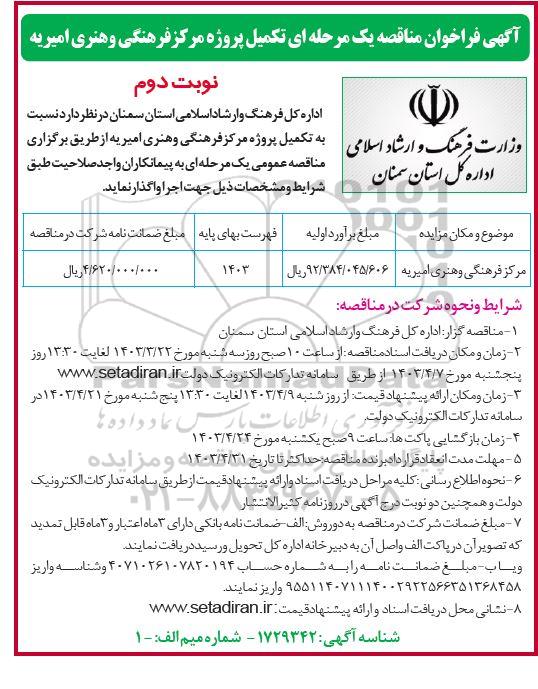 آگهی فراخوان مناقصه یک مرحله ای تکمیل پروژه مرکز فرهنگی وهنری امیریه
نوبت دوم
وزارت فرهنگ و ارشاد اسلامی
اداره کل استان سمنان
اداره کل فرهنگ وارشاداسلامی استان سمنان درنظر دارد نسبت
به تکمیل پروژه مرکز فرهنگی وهنری امیریه از طریق برگزاری
مناقصه عمومی یک مرحله ای به پیمانکاران واجدصلاحیت طبق
شرایط ومشخصات ذیل جهت اجرا واگذار نماید.
موضوع و مکان مزایده
مبلغ برآورد اولیه
فهرست بهای پایه
مبلغ ضمانت نامه شرکت در مناقصه
مرکز فرهنگی وهنری امیریه
۹۲/۳۸۴/۰۴۵/۶۰۶ریال
۱۴۰۳
۴/۶۲۰/۰۰۰/۰۰۰ریال
شرایط ونحوه شرکت در مناقصه:
۱-مناقصه گزار:اداره کل فرهنگ وارشاد اسلامی استان سمنان
۲-زمان و مکان دریافت اسنادمناقصه:از ساعت ۱۰صبح روز سه شنبه مورخ ۱۴۰۳/۳/۲۲ لغایت ۱۳:۳۰ روز
پنجشنبه مورخ ۱۴۰۳/۴/۷ از طریق سامانه تدارکات الکترونیک دولت www.setadiran.ir
۳-زمان ومکان ارائه پیشنهاد قیمت: از روز شنبه ۱۴۰۳/۴/۹ لغایت ۱۳:۳۰ پنج شنبه مورخ ۱۴۰۳/۴/۲۱در
سامانه تدارکات الکترونیک دولت.
۴-زمان بازگشایی پاکت ها: ساعت ۹صبح یکشنبه مورخ ۱۴۰۳/۴/۲۴
۵-مهلت مدت انعقاد قرارداد برنده مناقصه:حداکثر تا تاریخ ۱۴۰۳/۴/۳۱
۶-نحوه اطلاع رسانی:کلیه مراحل دریافت اسناد وارائه پیشنهادقیمت از طریق سامانه تدارکات الکترونیک
دولت و همچنین دو نوبت درج آگهی در روزنامه کثیر الانتشار
۷-مبلغ ضمانت شرکت در مناقصه به دوروش:الف-ضمانت نامه بانکی دارای ۳ماه اعتبار و۳ماه قابل تمدید
که تصویر آن در پاکت الف واصل آن به دبیرخانه اداره کل تحویل ورسید دریافت نمایند.
ویا ب-مبلغ ضمانت نامه را به شماره حساب ۴۰۷۱۰۲۶۱۰۷۸۲۰۱۹۴ وشناسه واریز
۹۵۵۱۱۴۰۷۱۱۱۴۰۰۲۹۲۲۵۶۶۳۵۱۳۶۸۴۵۸ واریز نمایند.
۸-نشانی محل دریافت اسناد و ارائه پیشنهادقیمت: www.setadiran.ir
شناسه آگهی: ۱۷۲۹۳۴۲- شماره میم الف: ۱۰